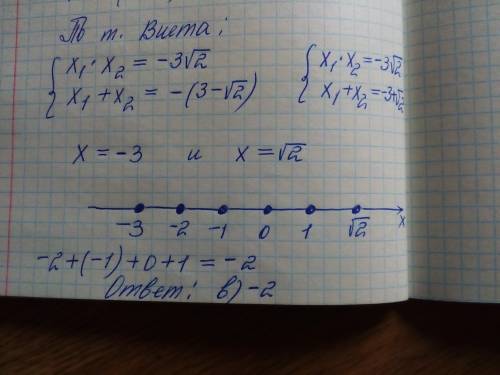 По т. Виета:
{ x₁·x₂ = -3√2
x₁+x₂ = -(3-√2)
{ x₁·x₂ = -3√2
x₁+x₂ = -3+√2
x = -3 и x = √2
-3 -2 -1 0 1 √2 x
-2+(-1)+0+1 = -2
Ответ: в) -2